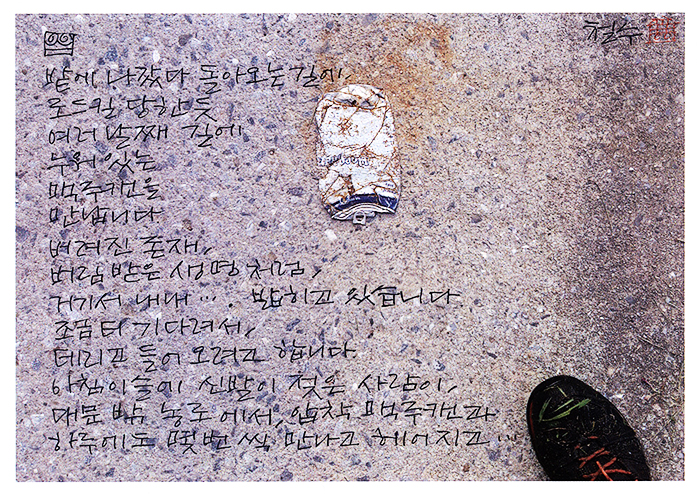 철수
밭에 나갔다 돌아오는 길에,
로드킬 당한 듯
여러 날째 길에
누워있는
맥주캔을
만납니다
버려진 존재,
버림 받은 생명처럼,
거기서 내내 …. 밟히고 있습니다
조금 더 기다려서,
데리고 들어 오려고 합니다
아침이슬에 신발이 젖은 사람이,
대문 밖 농로에서, 압착 맥주캔과
하루에도 몇번 씩 만나고 헤어지고 …